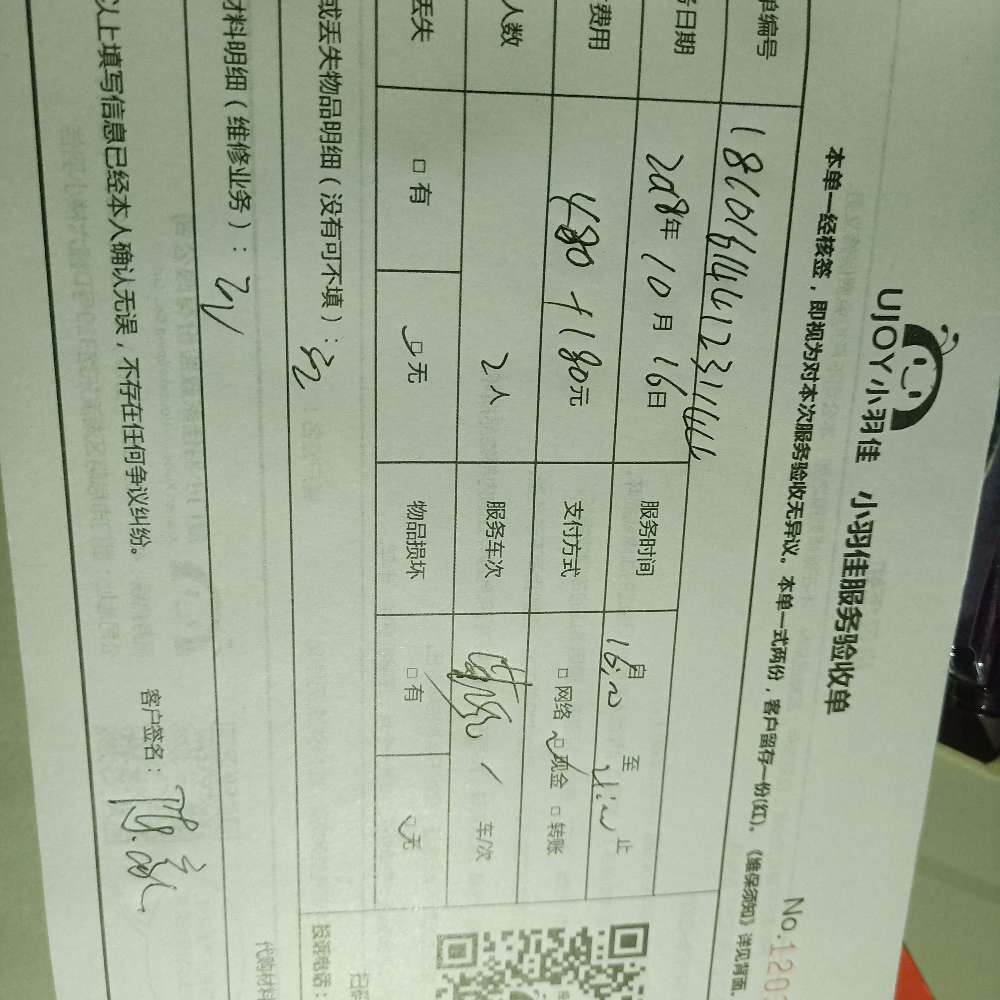 UJOY小羽佳 小羽佳服务验收单
本单一经核签，即视为对本次服务验收无异议。本单一式两份，客户留存一份(红)。《维保须知》详见背面。
No.120
单编号 18101614412311444
务日期 2018年10月16日 服务时间 自 至 止
费用 480+180元 支付方式 □网络 □现金 □转账
人数 2人 服务车次 1 车/次
丢失 □有 □无 物品损坏 □有 无
或丢失物品明细（没有可不填）：无
材料明细（维修业务）：无
以上填写信息已经本人确认无误，不存在任何争议纠纷。
客户签名：
投诉电话：
代购材料